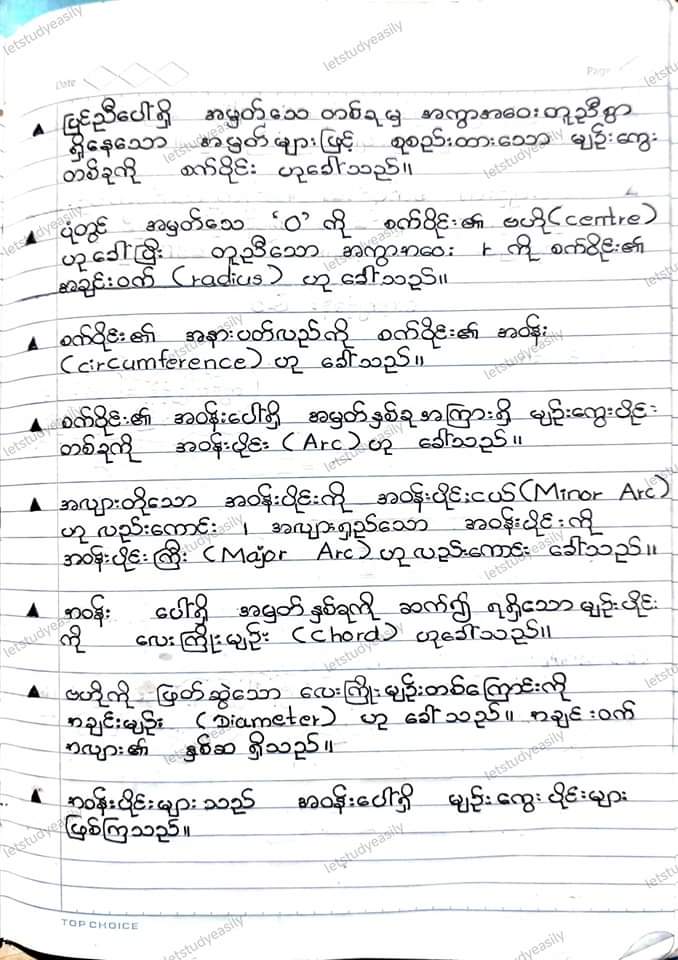 Date
Page
▲ ပြင်ညီပေါ်ရှိ အမှတ်သေ တစ်ခုမှ အကွာအဝေးတူညီစွာ
ရှိနေသော အမှတ်များဖြင့် စုစည်းထားသော မျဉ်းကွေး
တစ်ခုကို စက်ဝိုင်း ဟုခေါ်သည်။
▲ ပုံတွင် အမှတ်သေ 'O' ကို စက်ဝိုင်း၏ ဗဟို(centre)
ဟုခေါ်ပြီး တူညီသော အကွာအဝေး r ကို စက်ဝိုင်း၏
အချင်းဝက် (radius) ဟု ခေါ်သည်။
▲ စက်ဝိုင်း၏ အနားပတ်လည်ကို စက်ဝိုင်း၏ အဝန်း
(circumference) ဟု ခေါ်သည်။
▲ စက်ဝိုင်း၏ အဝန်းပေါ်ရှိ အမှတ်နှစ်ခုအကြားရှိ မျဉ်းကွေးပိုင်း
တစ်ခုကို အဝန်းပိုင်း (Arc) ဟု ခေါ်သည်။
▲ အလျားတိုသော အဝန်းပိုင်းကို အဝန်းပိုင်းငယ်(Minor Arc)
ဟုလည်းကောင်း ၊ အလျားရှည်သော အဝန်းပိုင်းကို
အဝန်းပိုင်းကြီး (Major Arc) ဟုလည်းကောင်း ခေါ်သည်။
▲ အဝန်း ပေါ်ရှိ အမှတ်နှစ်ခုကို ဆက်၍ ရရှိသောမျဉ်းပိုင်း
ကို လေးကြိုးမျဉ်း (Chord) ဟုခေါ်သည်။
▲ ဗဟိုကို ဖြတ်ဆွဲသော လေးကြိုးမျဉ်းတစ်ကြောင်းကို
အချင်းမျဉ်း (Diameter) ဟု ခေါ်သည်။ အချင်းဝက်
အလျား၏ နှစ်ဆ ရှိသည်။
▲ အဝန်းပိုင်းများသည် အဝန်းပေါ်ရှိ မျဉ်းကွေးပိုင်းများ
ဖြစ်ကြသည်။
TOP CHOICE
letstudyeasily